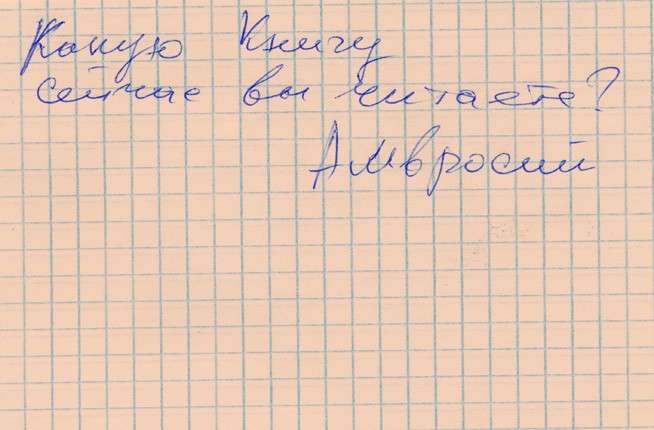 Какую Книгу
сейчас вы читаете?
Амвросий